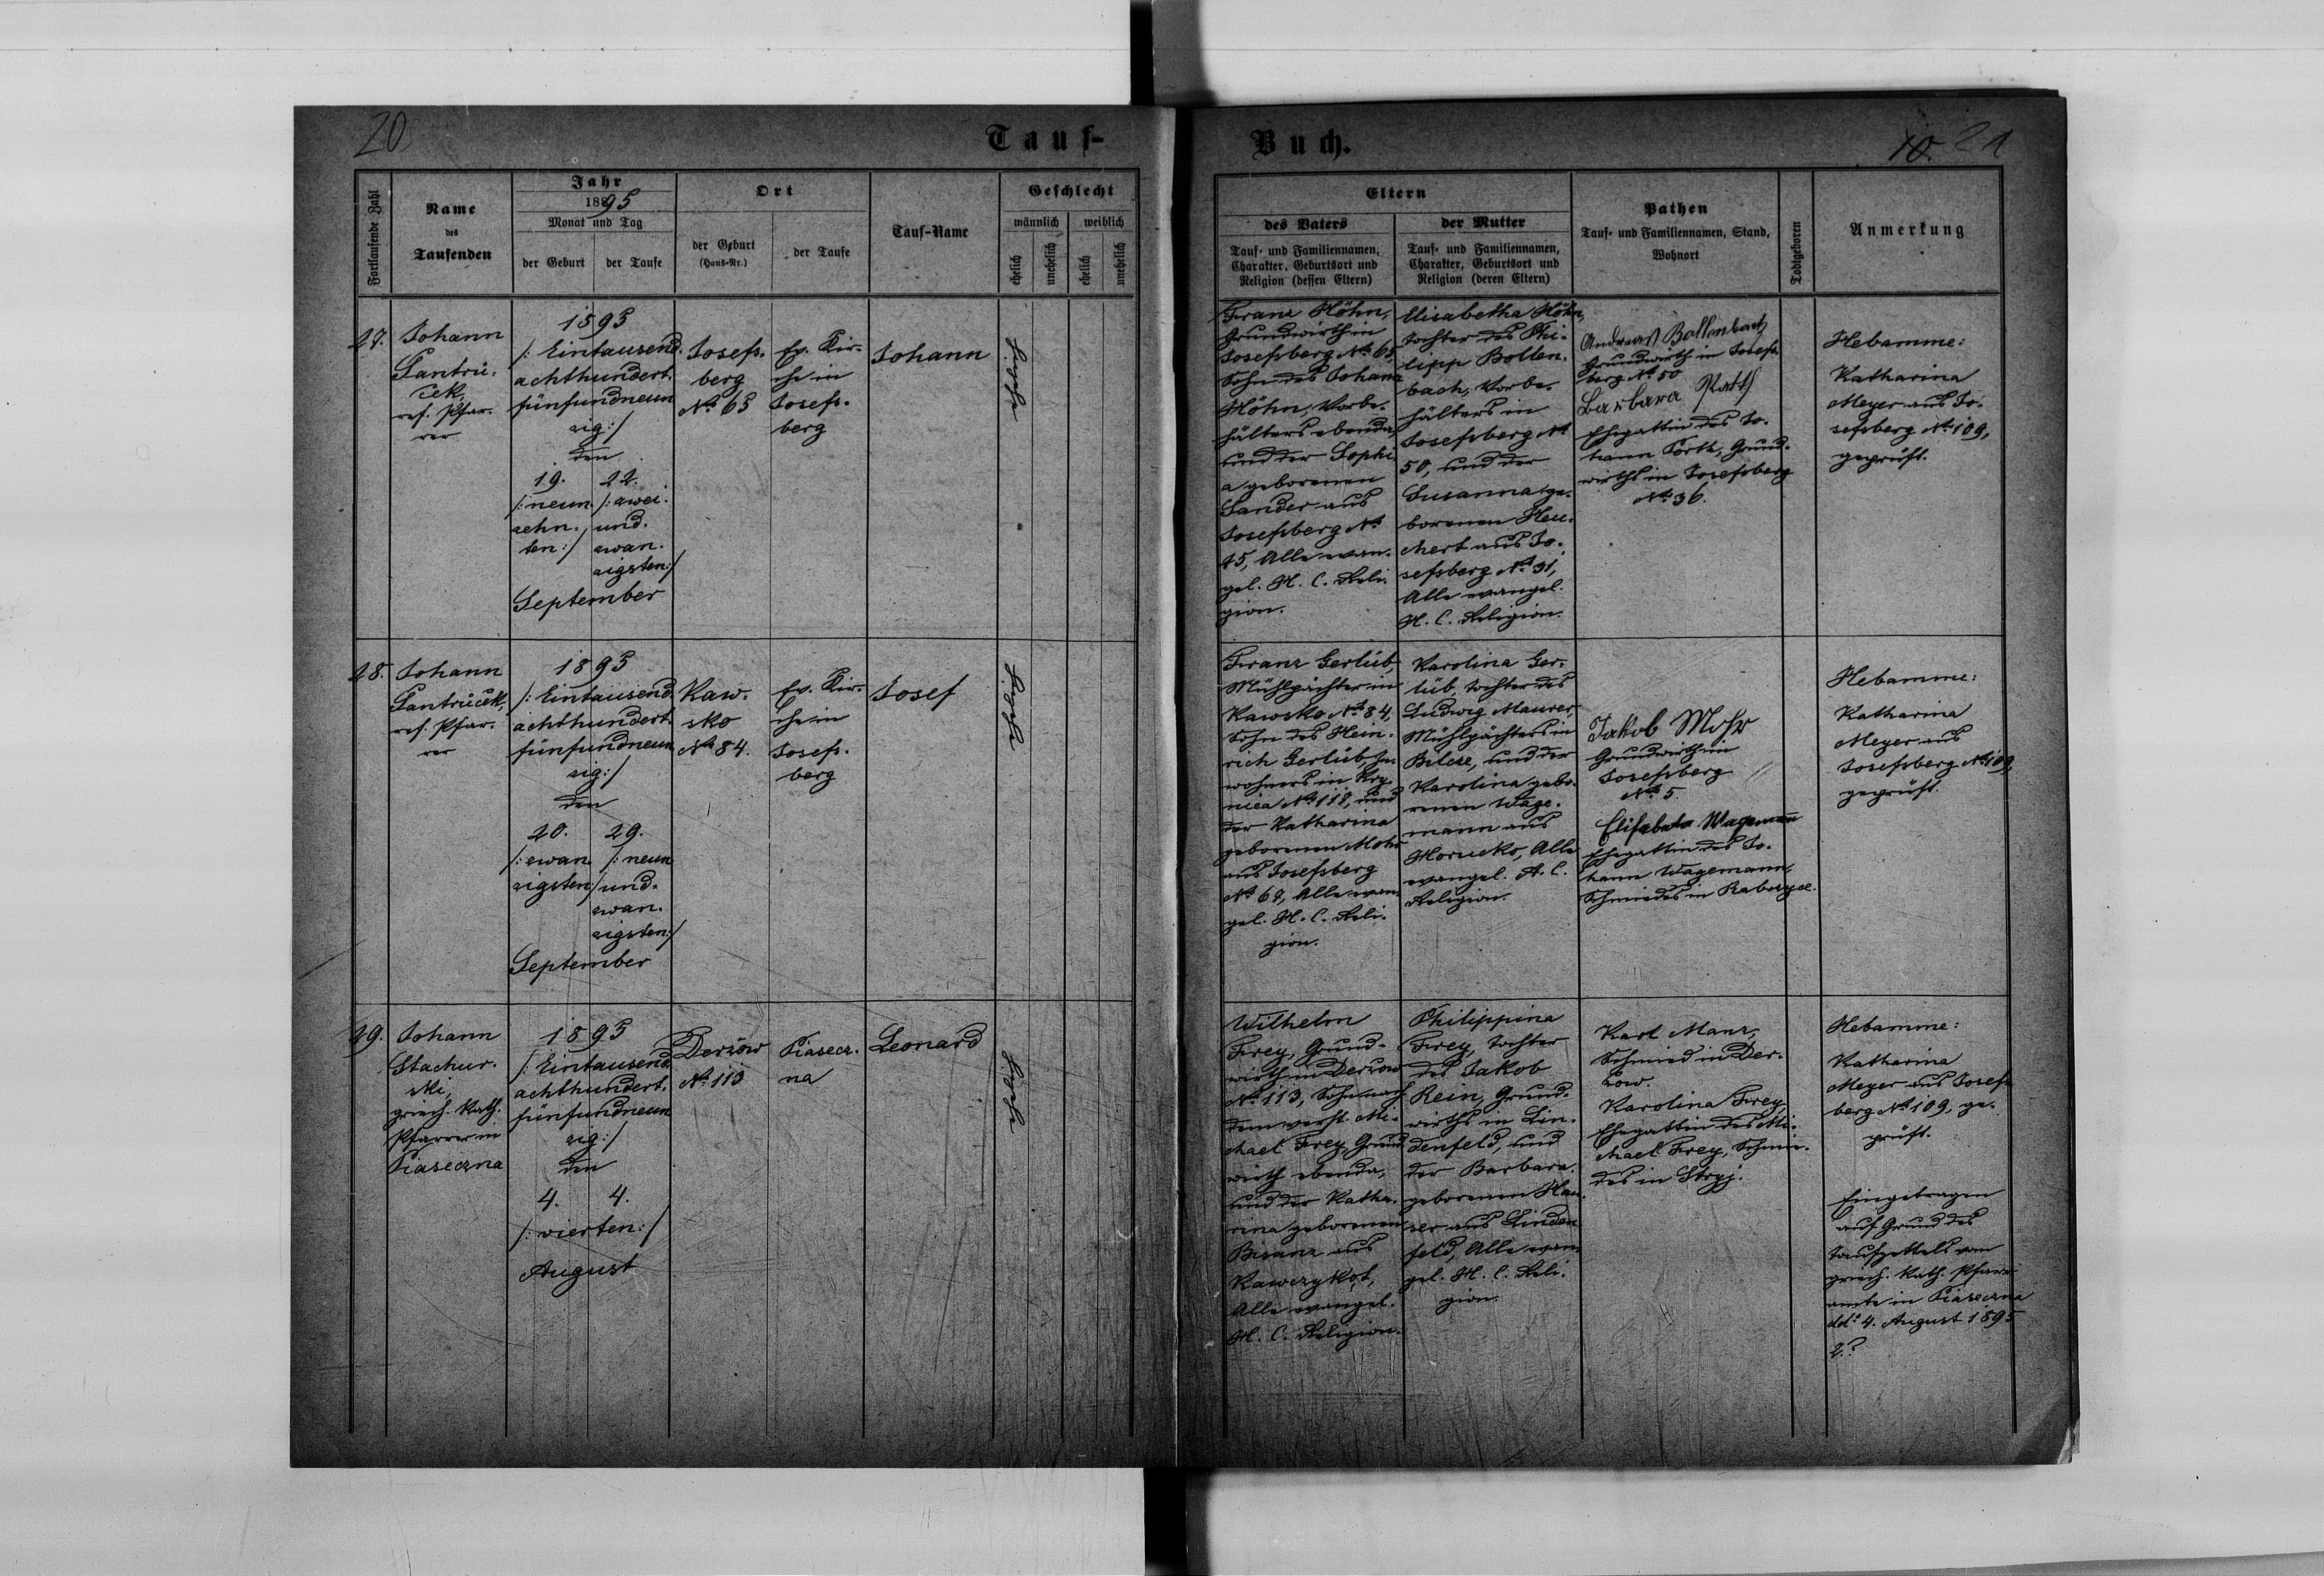 20
Tauf-
Fortlaufende Zahl
Name
des
Taufenden
Jahr
1895
Monat und Tag
der Geburt
der Taufe
Ort
der Geburt
(Haus-Nr.)
der Taufe
Tauf-Name
Geschlecht
männlich
weiblich
ehelich
unehelich
ehelich
unehelich
27.
Johann
Pantrů-
ček,
ref. Pfar-
rer
1895
/: Eintausend-
achthundert-
fünfundneun
zig :/
den
19.
/: neun-
zehn-
ten :/
22.
/: zwei-
und-
zwan-
zigsten :/
September
Josefs-
berg
No 65
Ev. Kir-
che in
Josefs-
berg
Johann
28.
Johann
Pantrůček,
ref. Pfar-
rer
1895
/: Eintausend-
achthundert-
fünfundneun
zig :/
den
20.
/: zwan
zigsten :/
29.
/: neun
und-
zwan-
zigsten :/
September
Kaw-
sko
No 84.
Ev. Kir-
che in
Josefs-
berg
Josef
29.
Johann
Stachur-
ski,
griech. kath.
Pfarrer in
Piaseczna
1895
/: Eintausend
achthundert-
fünfundneun
zig :/
den
4. 4.
/: vierten :/
August
Derżow
No 113
Piasecz-
na
Leonard
Buch.
10. 21
Eltern
des Vaters
Tauf- und Familiennamen,
Charakter, Geburtsort und
Religion (dessen Eltern)
der Mutter
Tauf- und Familiennamen,
Charakter, Geburtsort und
Religion (deren Eltern)
Pathen
Tauf- und Familiennamen, Stand,
Wohnort
Todtgeboren
Anmerkung
Franz Höhn,
Grundwirth in
Josefsberg No 65,
Sohn des Johann
Höhn, Vorbe-
hälters ebenda,
und der Sophi-
a geborenen
Sander aus
Josefsberg No
45, Alle evan-
gel. H. C. Reli-
gion.
Elisabetha Höhn,
Tochter des Phi-
lipp Bollen-
bach, Vorbe-
hälters in
Josefsberg No
50, und der
Susanna ge-
borenen Heu-
chert aus Jo-
sefsberg No 31,
Alle evangel.
H. C. Religion.
Andreas Bollenbach
Grundwirth in Josefs-
berg No 50
Barbara
Ehegattin des Jo-
hann Porth, Grund-
wirths in Josefsberg
No 36.
Hebamme:
Katharina
Meyer aus Jo-
sefsberg No 109,
geprüft.
Franz Gerlüb,
Mühlpächter in
Kawsko No 84,
Sohn des Hein-
rich Gerlüb, In-
wohners in Kry-
nica No 118, und
der Katharina
geborenen Mohr
aus Josefsberg
No 67, Alle evan-
gel. H. C. Reli-
gion.
Karolina Ger-
lüb, Tochter des
Ludwig Maurer,
Mühlpächters in
Bilcze, und der
Karolina gebo-
renen Wage-
mann aus
Horucko, Alle
evangel. A. C.
Religion.
Jakob Mohr
Grundwirth in
Josefsberg
No 5.
Elisabeta Wagemann
Ehegattin des Jo-
hann Wagemann,
Schmiedes in
Hebamme:
Katharina
Meyer aus
Josefsberg No 109,
geprüft.
Wilhelm
Frey, Grund-
wirth in Derżow
No 113, Sohn nach
dem verst. Mi-
chael Frey, Grund
wirth ebenda,
und der Katha-
rina geborenen
Bisanz aus
Kawczykąt,
Alle evangel.
H. C. Religion.
Philippina
Frey, Tochter
des Jakob
Rein, Grund-
wirths in Lin-
denfeld, und
der Barbara
geborenen Hau-
ser aus Linden
feld, Alle evan-
gel. H. C. Reli-
gion.
Karl Manz,
Schmied in Der-
żow.
Karolina Frey,
Ehegattin des Mi-
chael Frey, Schmie-
des in Stryj.
Hebamme:
Katharina
Meyer aus Josefs-
berg No 109, ge-
prüft.
Eingetragen
auf Grund des
Taufzettels vom
griech. kath. Pfarr-
amte in Piaseczna
ddo 4. August 1895